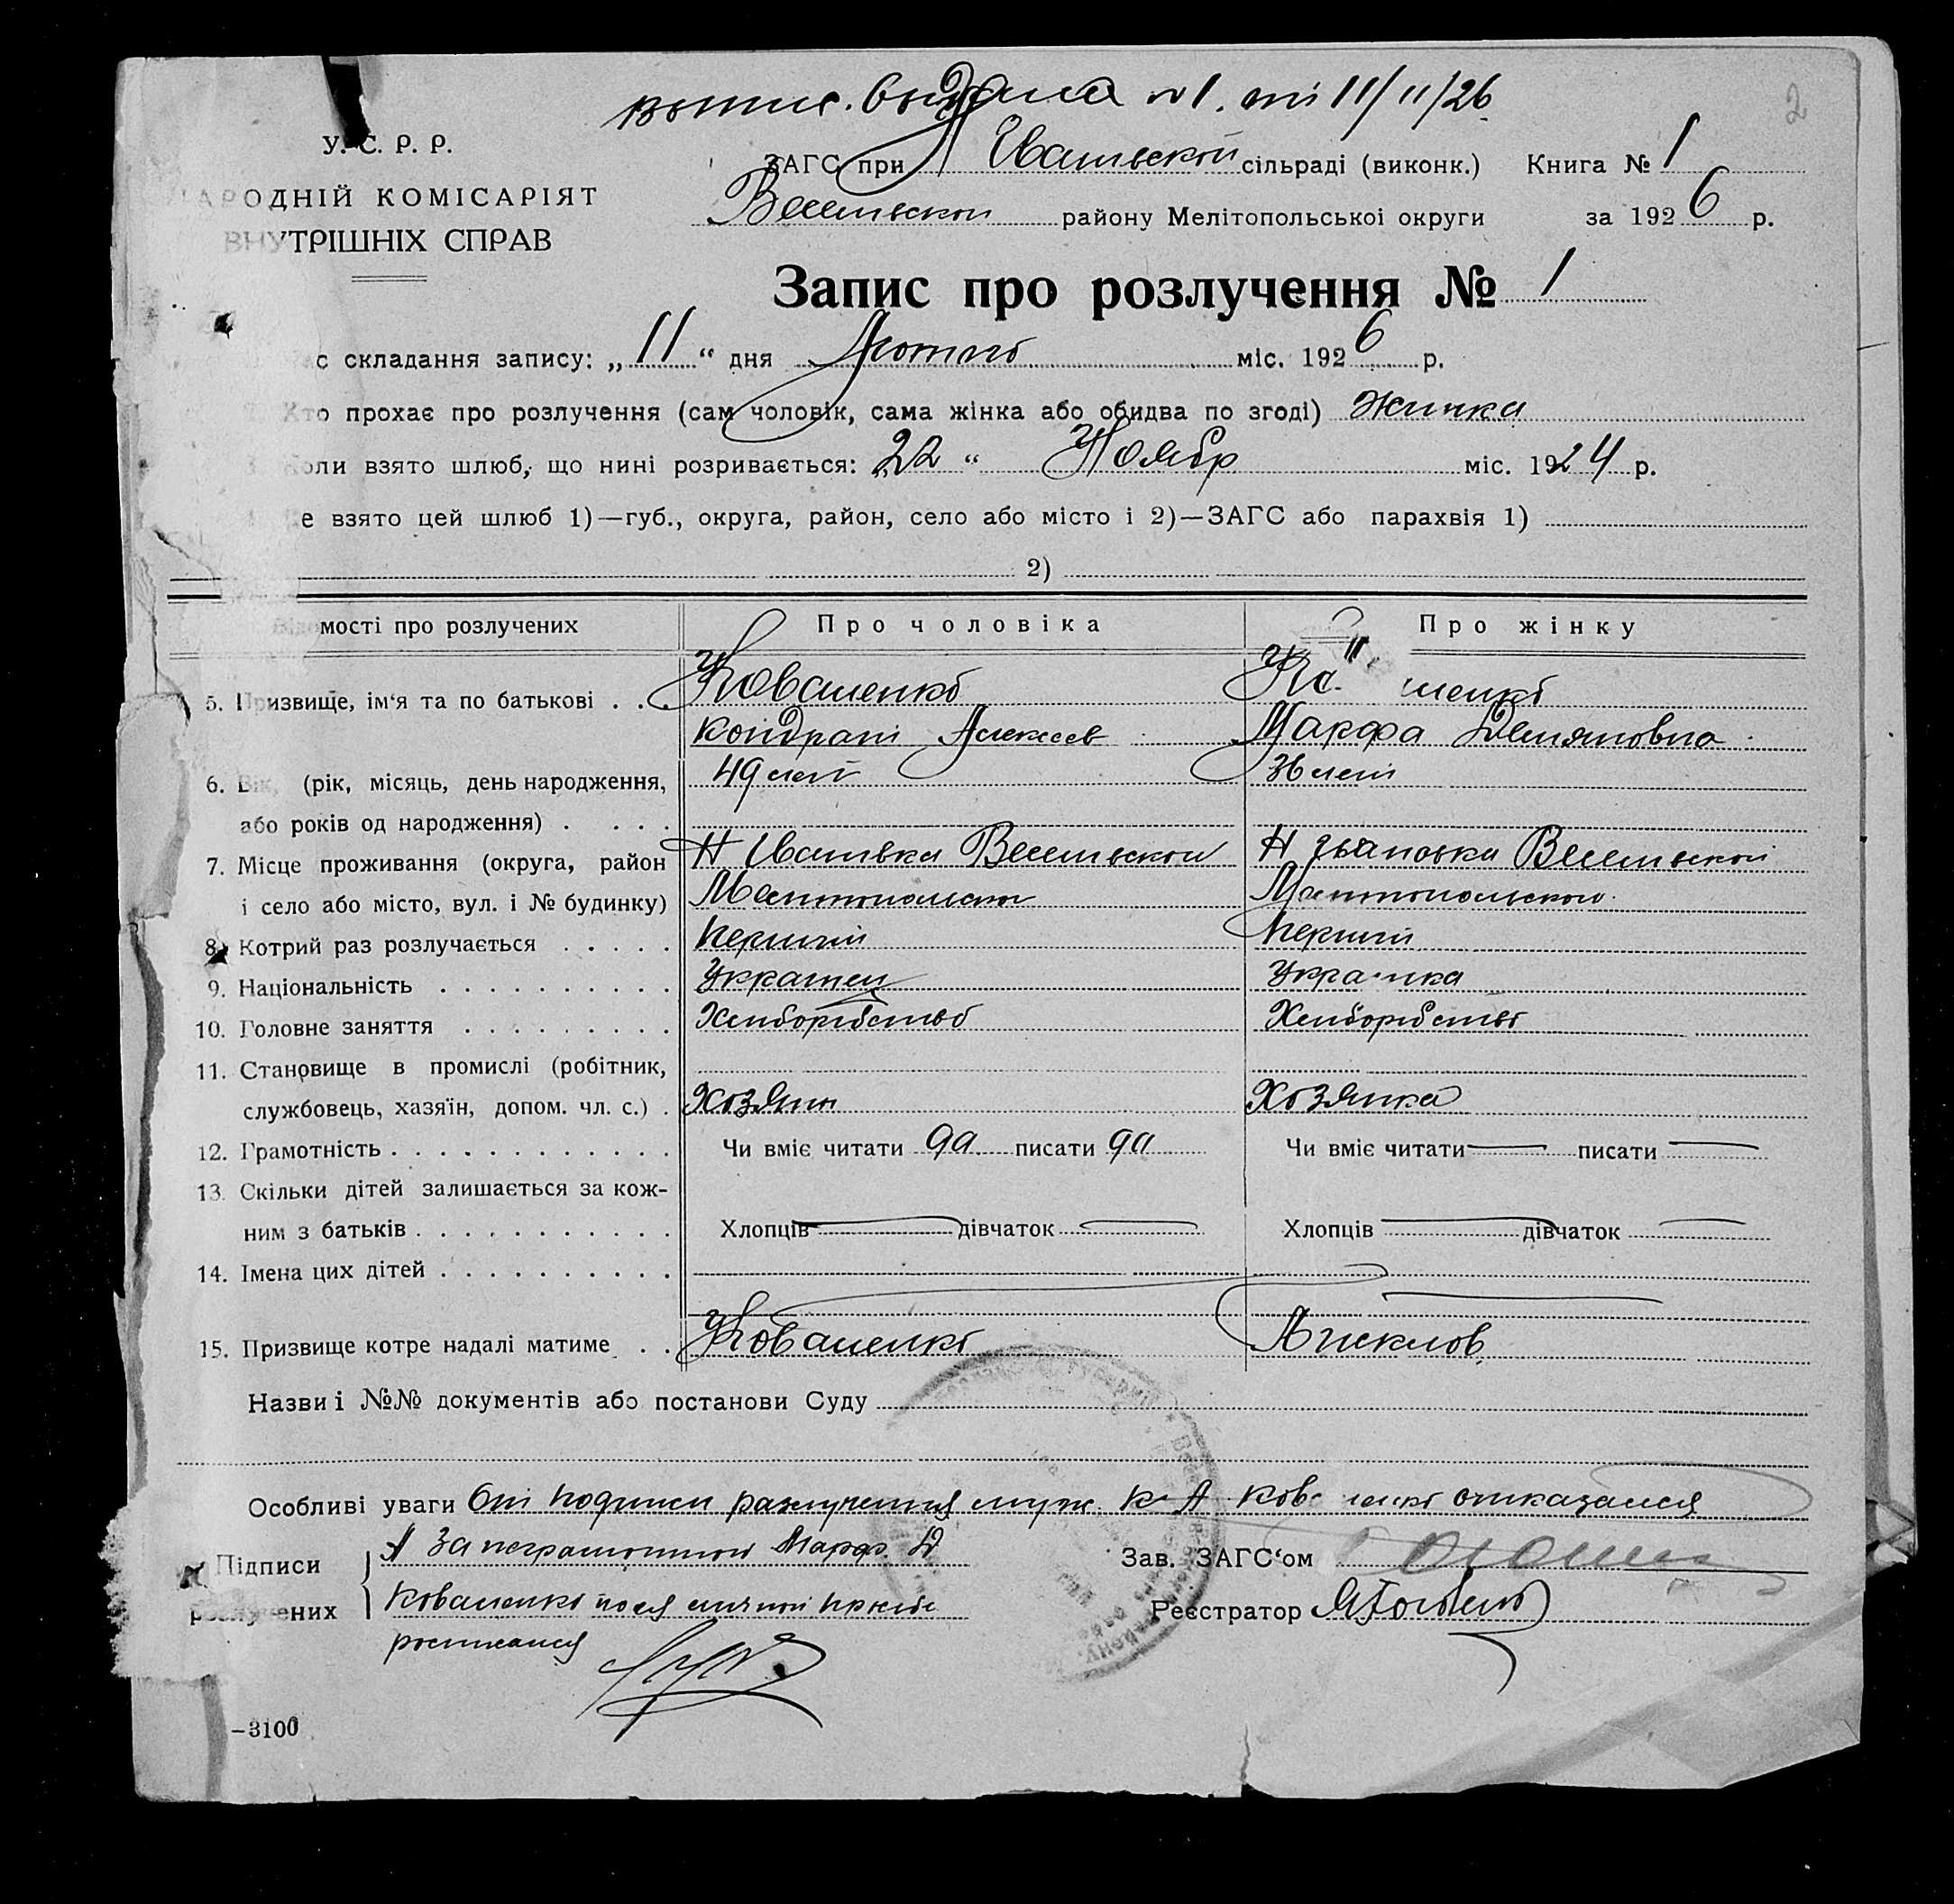 выпис. выдана №1. от 11/II/26
2
У. С. Р. Р.
НАРОДНІЙ КОМІСАРІЯТ
ВНУТРІШНІХ СПРАВ
ЗАГС при Н Ивановской сільраді (виконк.) Книга № 1
Веселовской району Мелітопольської округи за 1926 р.
Запис про розлучення № 1
складання запису: „11“ дня Лютого міс. 1926 р.
Кто прохає про розлучення (сам чоловік, сама жінка або обидва по згоді) Жинка
3. Коли взято шлюб, що нині розривається: „22“ Ноябр міс. 1924 р.
взято цей шлюб 1)—губ., округа, район, село або місто і 2)—ЗАГС або парахвія 1)
2)
Відомості про розлучених Про чоловіка Про жінку
5. Призвище, ім'я та по батькові . . . Коваленко Ко ленко
Кондрат Алексеев Марфа Демяновна
6. Вік, (рік, місяць, день народження, 49 лет 36 лет
або років од народження) . . . .
7. Місце проживання (округа, район Н Ивановка Веселовской Н Ивановка Веселовской
і село або місто, вул. і № будинку) Мелитопольской Мелитопольского
8. Котрий раз розлучається . . . . . Первый Первый
9. Національність . . . . . . . . . . Украинец Украинка
10. Головне заняття . . . . . . . . . Хлиборобство Хлиборобство
11. Становище в промислі (робітник,
службовець, хазяїн, допом. чл. с.) . Хозяин Хозяйка
12. Грамотність . . . . . . . . . . . . Чи вміє читати да писати да Чи вміє читати — писати —
13. Скільки дітей залишається за кож-
ним з батьків . . . . . . . . . . . Хлопців — дівчаток — Хлопців — дівчаток —
14. Імена цих дітей . . . . . . . . . .
15. Призвище котре надалі матиме . . Коваленко
Назви і №№ документів або постанови Суду
Особливі уваги От подписи разлучения муж К А Ков ленко отказался
Підписи А За неграмотной Марф. Д Зав. ЗАГС'ом
розлучених Коваленко личной Реєстратор
росписался
–3100